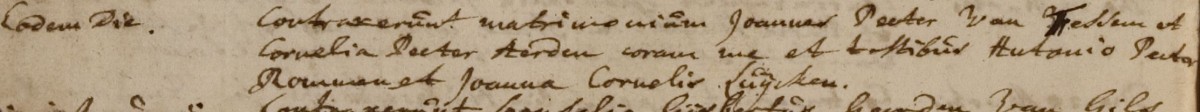 Eodem Die. Contraxerunt matrimonium Joannes Peeter Van Hessem et
Cornelia Peeter Aerden coram me et testibus Antonio Peeter
Rommen et Joanna Cornelis Luijcken.